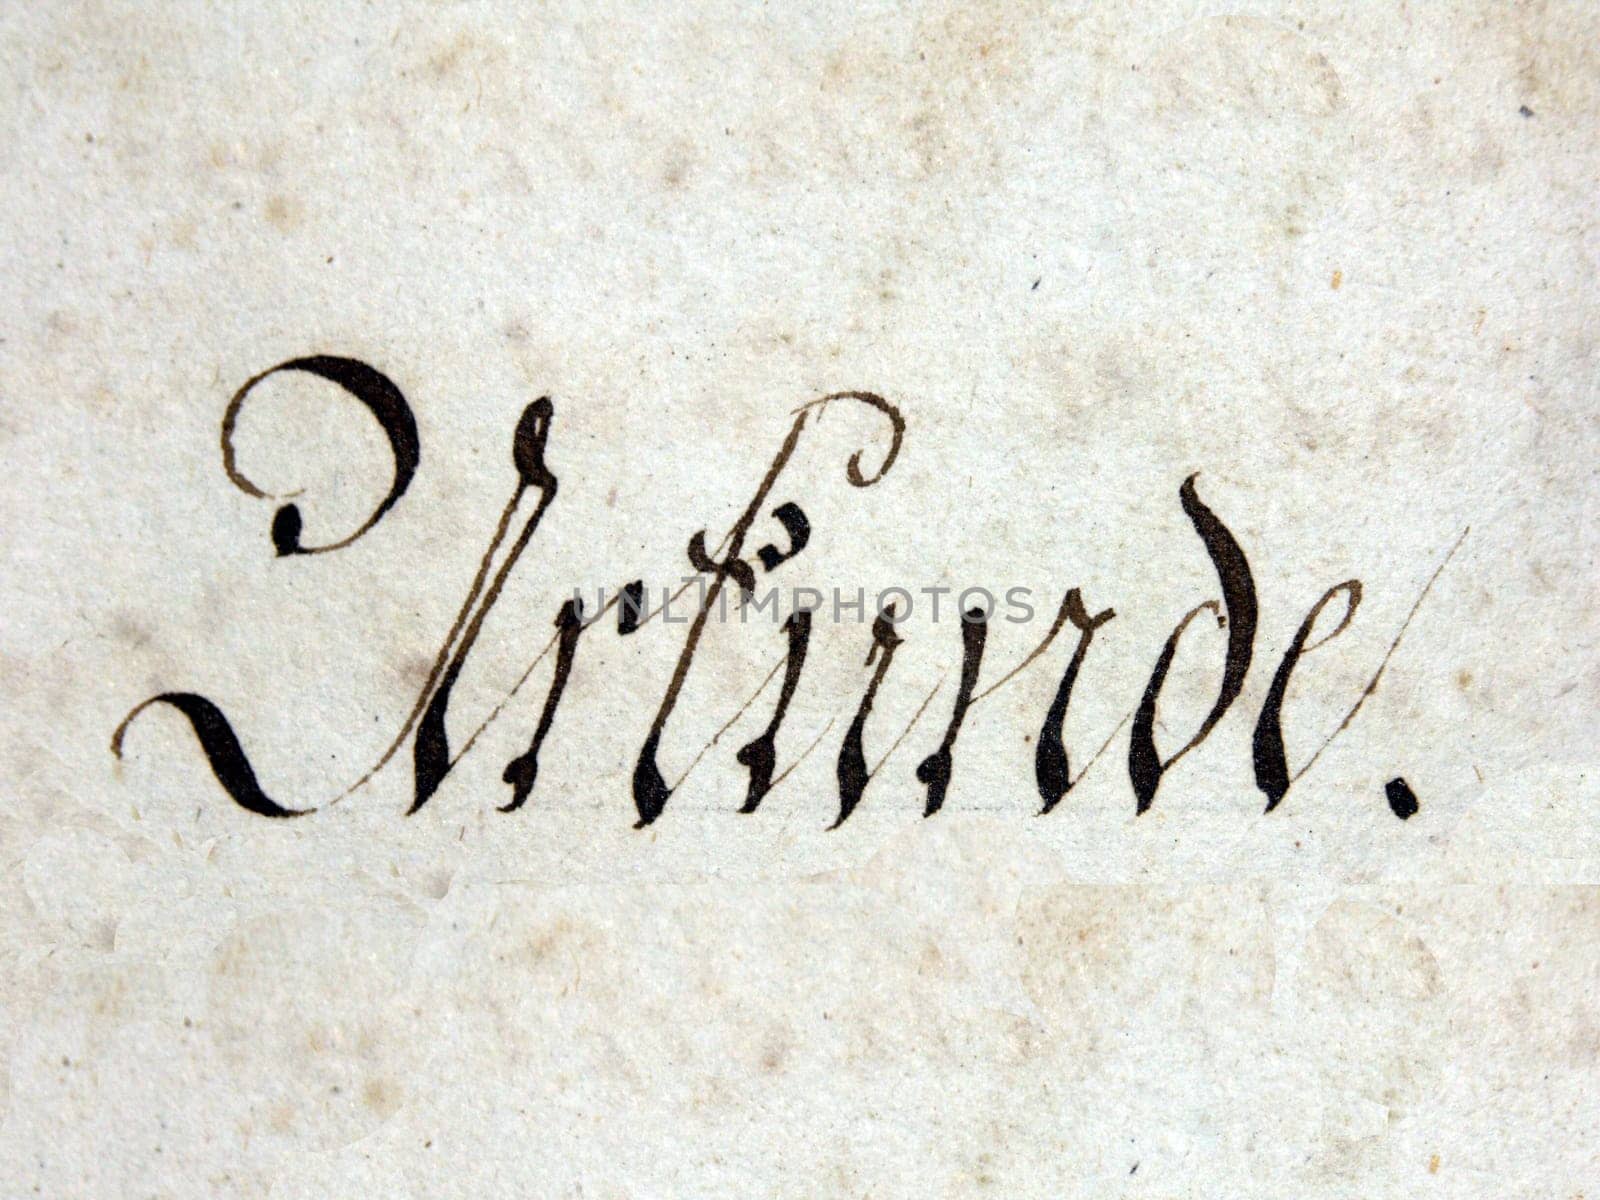 Urkunde.
UNLIIMPHOTOS